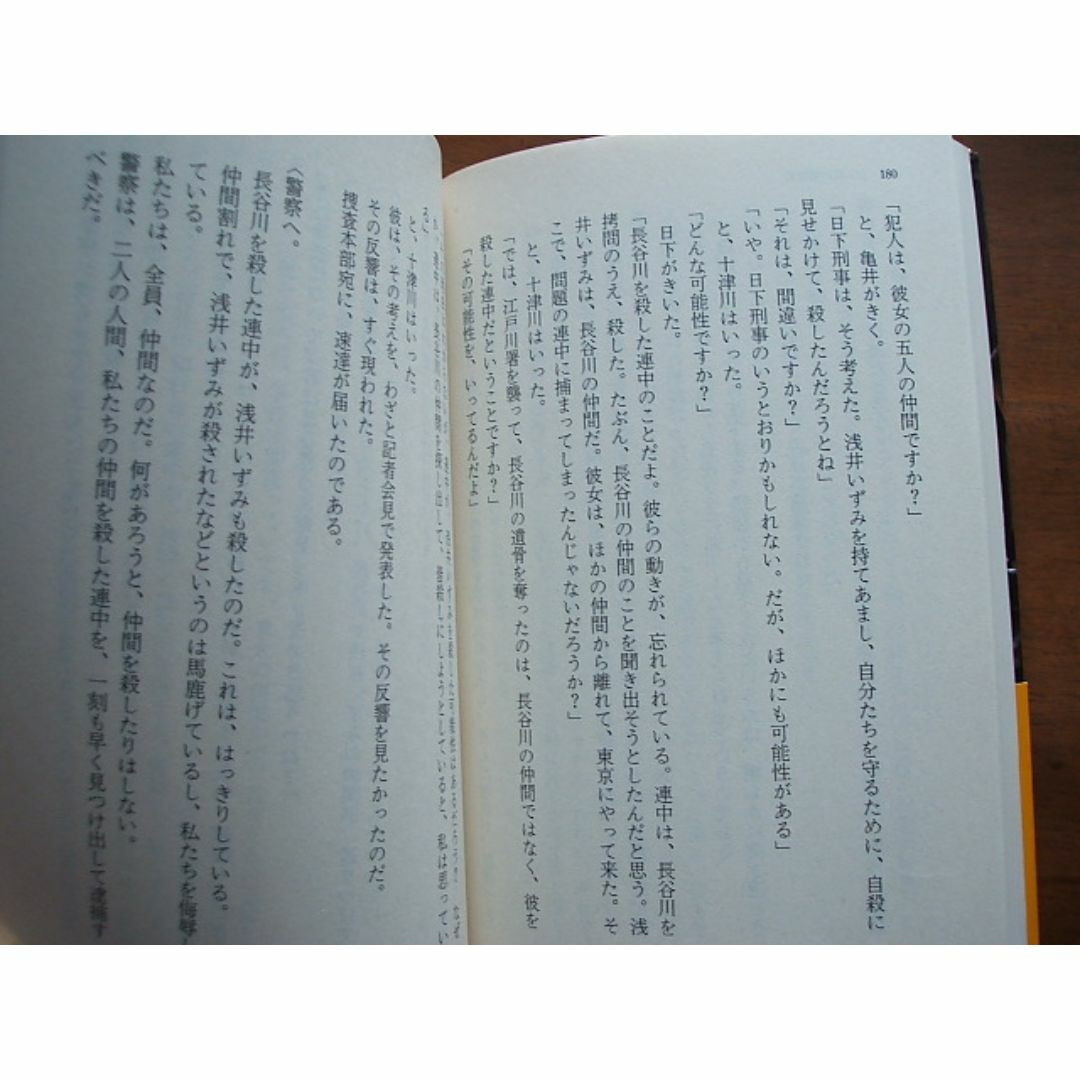 180
「犯人は、彼女の五人の仲間ですか？」
と、亀井がきく。
「日下刑事は、そう考えた。浅井いずみを持てあまし、自分たちを守るために、自殺に
見せかけて、殺したんだろうとね」
「それは、間違いですか？」
「いや。日下刑事のいうとおりかもしれない。だが、ほかにも可能性がある」
と、十津川はいった。
「どんな可能性ですか？」
日下がきいた。
「長谷川を殺した連中のことだよ。彼らの動きが、忘れられている。連中は、長谷川を
拷問のうえ、殺した。たぶん、長谷川の仲間のことを聞き出そうとしたんだと思う。浅
井いずみは、長谷川の仲間だ。彼女は、ほかの仲間から離れて、東京にやって来た。そ
こで、問題の連中に捕まってしまったんじゃないだろうか？」
と、十津川はいった。
「では、江戸川署を襲って、長谷川の遺骨を奪ったのは、長谷川の仲間ではなく、彼を
殺した連中だということですか？」
「その可能性を、いってるんだよ」
の仲間を探し出して、皆殺しにしようとしていると、私は思ってい
る」
と、十津川はいった。
彼は、その考えを、わざと記者会見で発表した。その反響を見たかったのだ。
その反響は、すぐ現われた。
捜査本部宛に、速達が届いたのである。
〈警察へ。
長谷川を殺した連中が、浅井いずみも殺したのだ。これは、はっきりしている。
仲間割れで、浅井いずみが殺されたなどというのは馬鹿げているし、私たちを侮辱し
ている。
私たちは、全員、仲間なのだ。何があろうと、仲間を殺したりはしない。
警察は、二人の人間、私たちの仲間を殺した連中を、一刻も早く見つけ出して逮捕す
べきだ。